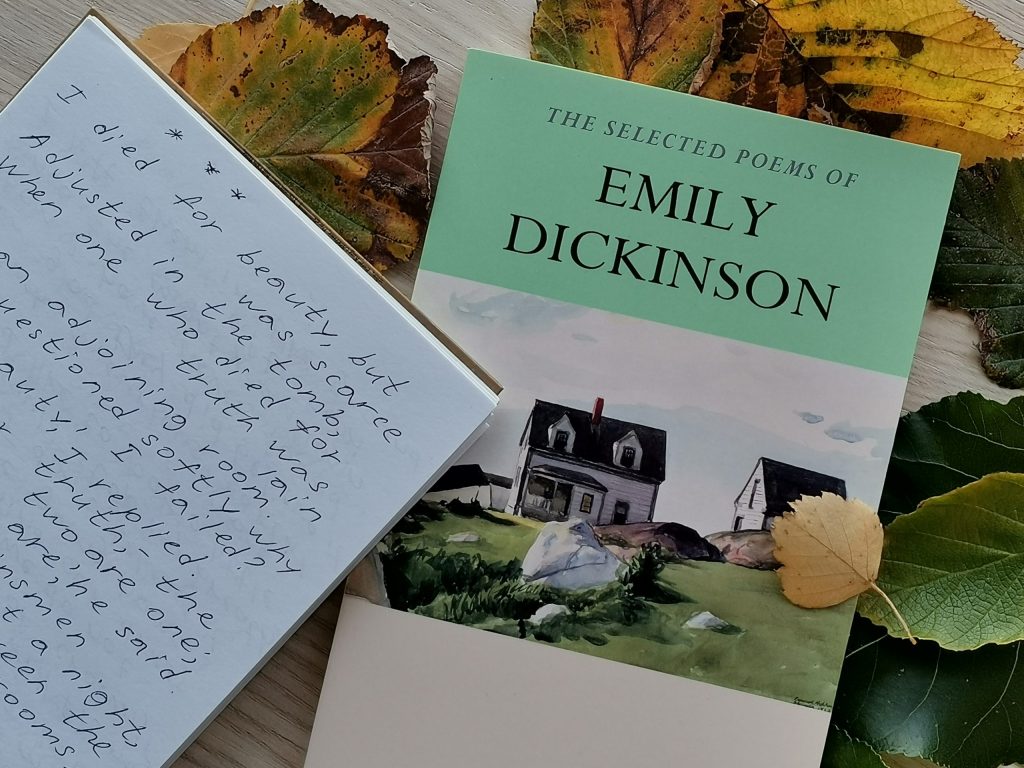 * * *
I died for beauty, but
was scarce
Adjusted in the tomb,
When one who died for
truth was
lain
an adjoining room.
questioned softly why
I failed?
I replied
truth,- the
two are one;
are, he said.
a night,
the
rooms
THE SELECTED POEMS OF
EMILY
DICKINSON